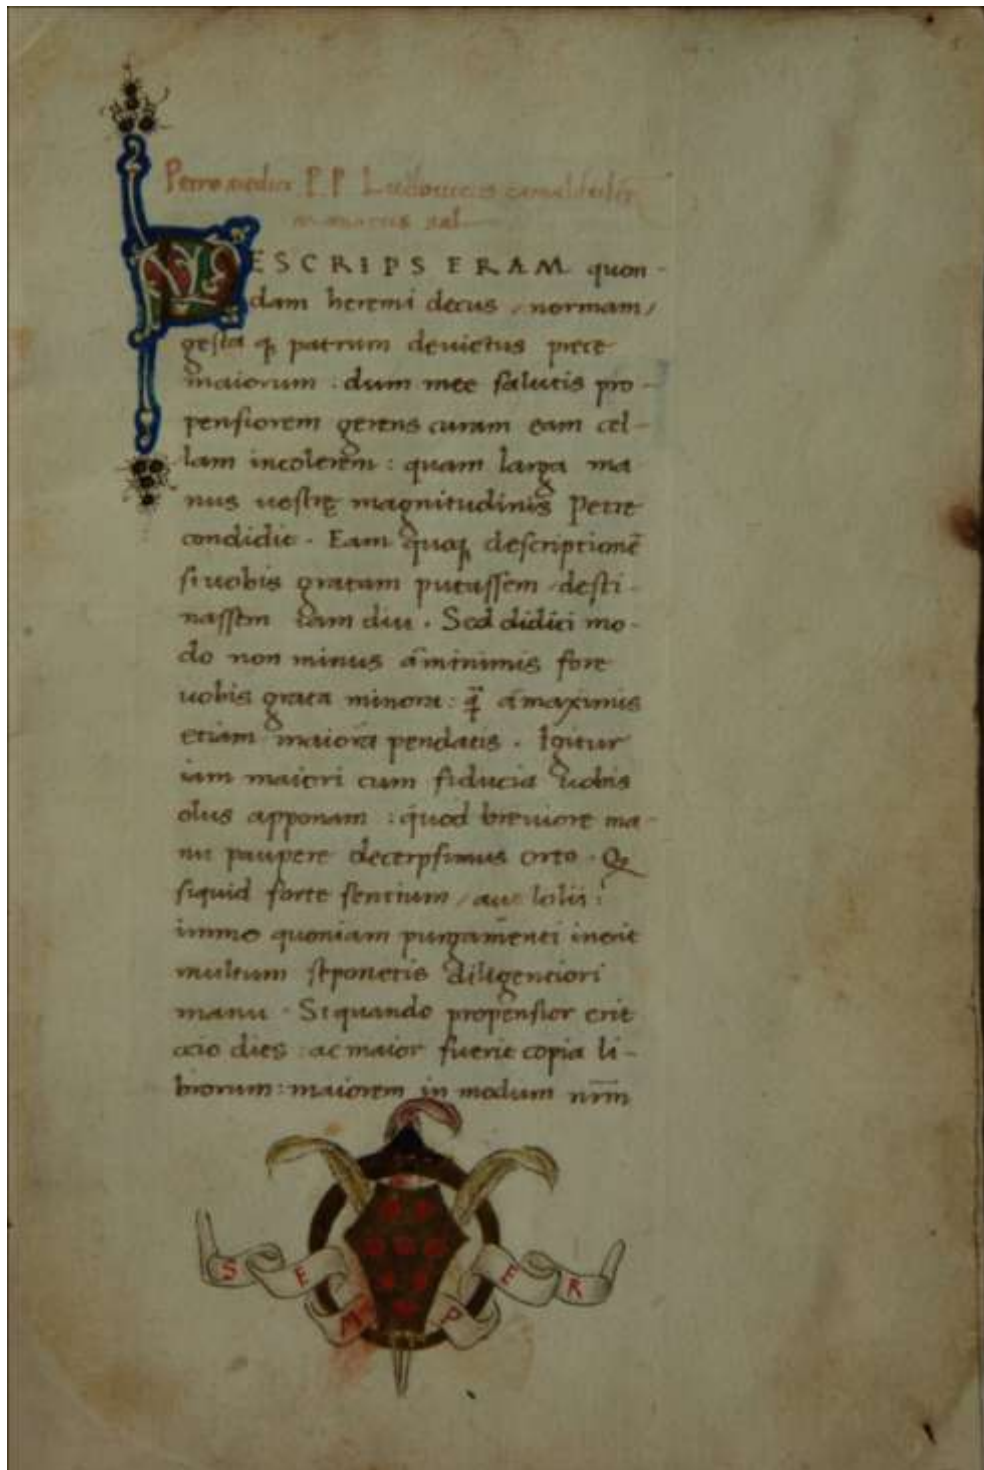 Petro medici P. P. Ludouicus camaldulen
monacus sal
DESCRIPSERAM quon-
dam heremi decus / normam /
gesta q; patrum deuictus prece
maiorum : dum mee salutis pro-
pensiorem gerens curam eam cel-
lam incolerem : quam larga ma
nus uestrę magnitudinis Petre
condidit . Eam quoq; descriptionē
si uobis gratam putassem desti-
nassem iam diu . Sed didici mo-
do non minus a minimis fore
uobis grata minora : q̄ a maximis
etiam maiora pendatis . Igitur
iam maiori cum fiducia uobis
olus apponam : quod breuiore ma-
nu paupere decerpsimus orto . Q;
siquid forte sentium / aut lolii :
immo quoniam purgamenti inerit
multum seponetis diligentiori
manu . Si quando propensior erit
ocio dies : ac maior fuerit copia li-
brorum : maiorem in modum nr̄m
SEMPER